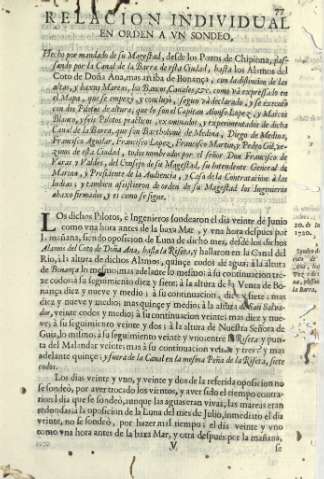 77
RELACION INDIVIDUAL
EN ORDEN A VN SONDEO,
Hecho por mandado de su Magestad, desde los Pozos de Chipiona, pas-
sando por la Canal de la Barra de esta Ciudad, hasta los Alamos del
Coto de Doña Ana, mas arriba de Bonança, con la distincion de las
altas, y baxas Mareas, los Bancos, Canales, &c. como và expressado en
el Mapa, que se empezò, y concluyò, segun và declarado, y se executò
con dos Pilotos de altura, que lo son el Capitan Alonso Lopez, y Marcos
Blanco, y seis Pilotos practicos, examinados, y experimentados de dicha
Canal de la Barra, que son Bartholomè de Medina, Diego de Medina,
Francisco Aguilar, Francisco Lopez, Francisco Martin, y Pedro Gil, ve-
zinos de esta Ciudad, todos nombrados por el señor Don Francisco de
Varas y Valdès, del Consejo de su Magestad, su Intendente General de
Marina, y Presidente de la Audiencia, y Casa de la Contratacion à las
Indias, y tambien assistieron de orden de su Magestad los Ingenieros
abaxo firmados, y es como se sigue.
LOs dichos Pilotos, è Ingenieros sondearon el dia veinte de Junio
como vna hora antes de la baxa Mar, y vna hora despues por
la mañana, siendo oposicion de Luna de dicho mes, desde los dichos
Alamos del Coto de Doña Ana, hasta la Riseta, y hallaron en la Canal del
Rio, à la altura de dichos Alamos, quinze codos de agua: à la altura
de Bonança lo mesmo; mas adelante lo mesmo: à su continuacion tre-
ze codos: à su seguimiento diez y siete: à la altura de la Venta de Bo-
nança diez y nueve y medio; à su continuacion, diez y siete; mas
diez y nueve y medio; mas quinze y medio; à la altura de San Salva-
dor, veinte codos y medio; à su continuacion veinte; mas diez y nue-
ve; à su seguimiento veinte y dos; à la altura de Nuestra Señora de
Guia, lo mismo; à su seguimiento veinte y vno; entre Riseta y pun-
ta del Malandar veinte; mas à su continuacion veinte y tres, y mas
adelante quinze; y fuera de la Canal en la mesma Peña de la Riseta, siete
codos.
Los dias veinte y vno, y veinte y dos de la referida oposicion no
se sondeò, por aver tocado los vientos, y aver sido el tiempo contra-
rio: el dia que se sondeò, aunque las aguas eran vivas, las mareas eran
en la oposicion de la Luna del mes de Julio, inmediato el dia
veinte, no se sondeò, por hazer mal tiempo; el dia veinte y vno
como vna hora antes de la baxa Mar, y otra despues por la mañana,
V.
se
20. de
1720.
Sondeo
la Barra.